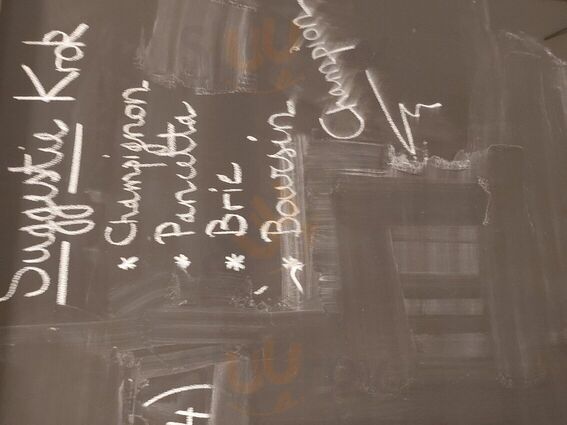 Suggestie Krok
* Champignon
* Pancetta
* Brie
* Boursin
Champion
4)